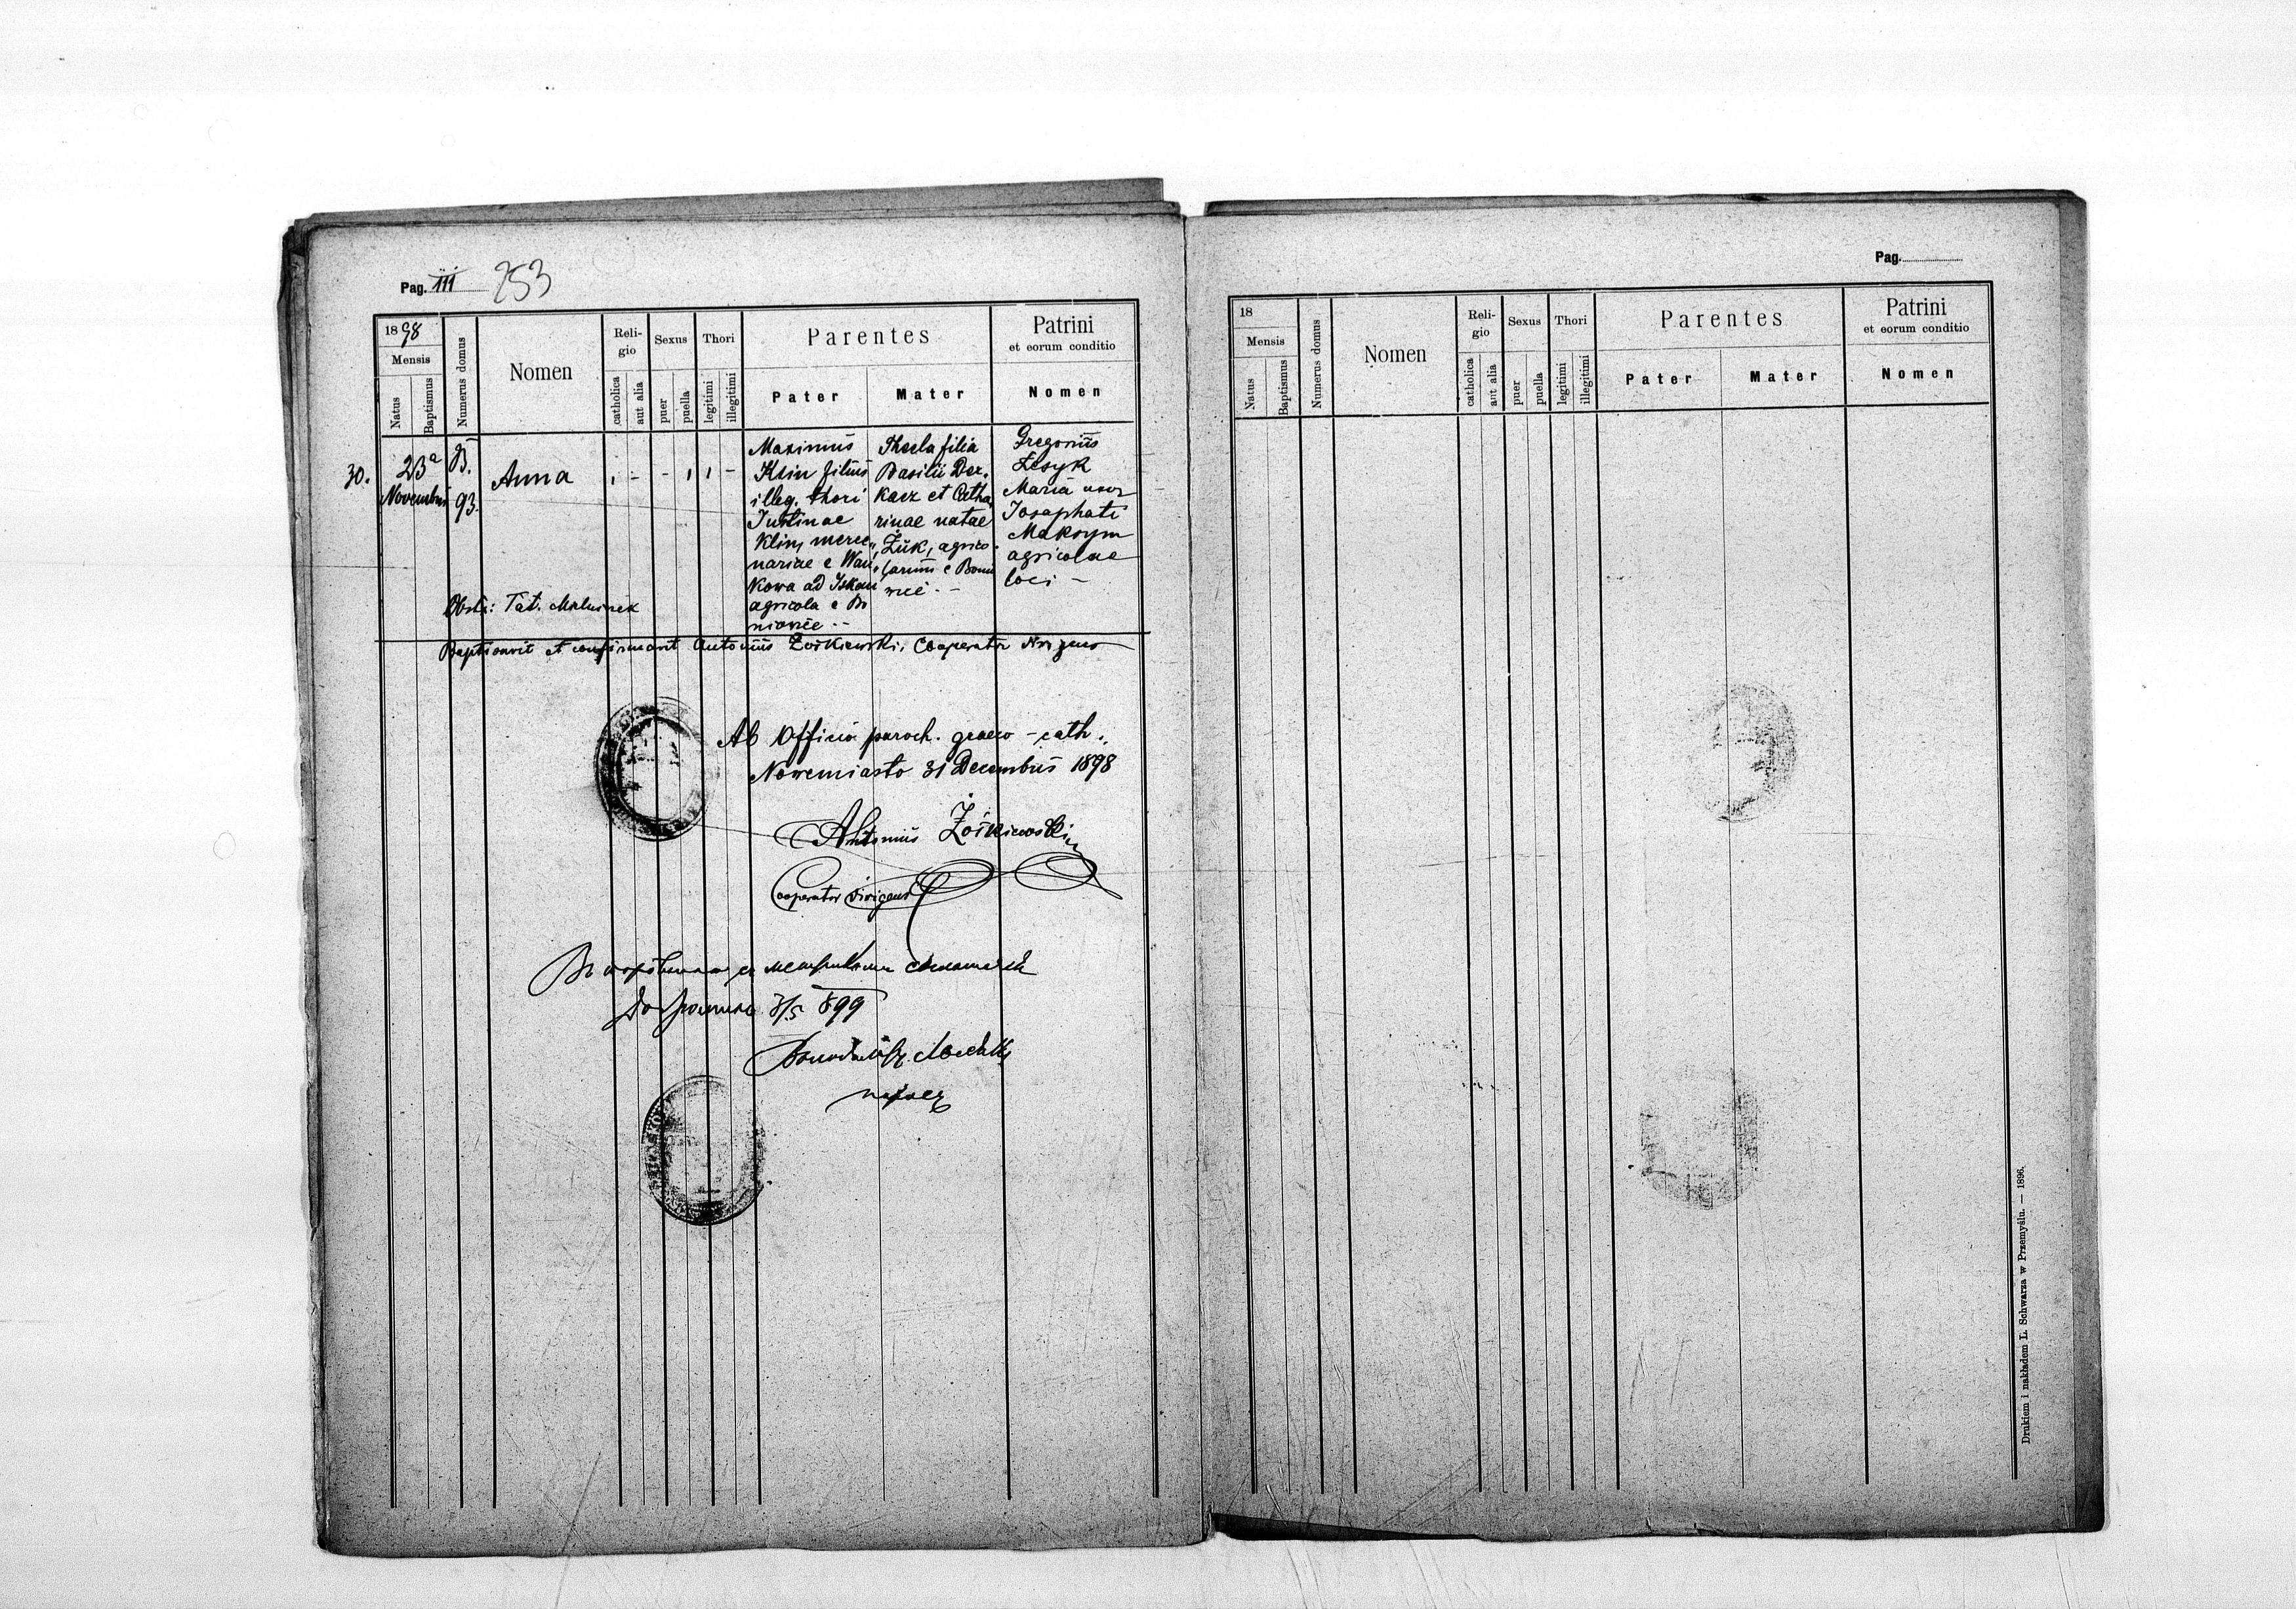 Pag. 111 253
1898
Mensis
Natus
Baptismus
Numerus domus
Nomen
Reli-
gio
catholica
aut alia
Sexus
puer
puella
Thori
legitimi
illegitimi
Parentes
Pater
Mater
Patrini
et eorum conditio
Nomen
30.
23ª
Novembris
B.
93.
Anna
Maximus
Klin filius
illeg. thori
Justinae
Klin, merce„
nariae e Wań„
kowa ad Iskań
agricola e Bo
niowice --
Thecla filia
Basilii Der„
kacz et Catha„
rinae natae
Żuk, agrico„
larum e Boni
wice. -
Gregorius
Łesyk
Maria uxor
Josaphati
Maksym
agricolae
loci -
Obst: Tat.
Baptisavit et confirmavit Antonius Cooperator
Ab Officio paroch. graeco-cath.
Nowemiasto 31 Decembris 1898
Antonius
Cooperator dirigens
899
Pag.
18
Mensis
Natus
Baptismus
Numerus domus
Nomen
Reli-
gio
catholica
aut alia
Sexus
puer
puella
Thori
legitimi
illegitimi
Parentes
Pater
Mater
Patrini
et eorum conditio
Nomen
Drukiem i nakładem L. Schwarza w Przemyślu. — 1896.